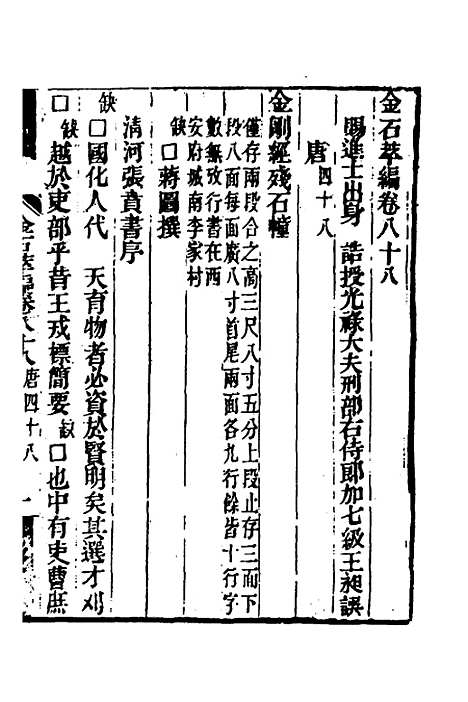 金石萃編卷八十八
賜進士出身 誥授光祿大夫刑部右侍郎加七級王昶譔
唐四十八
金剛經殘石幢
僅存兩段合之高三尺八寸五分上段止存三面下
段八面每面廣八寸首尾兩面各九行餘皆十行字
數無攷行書在西
安府城南李家村
缺□蔣圖撰
清河張賁書序
缺□國化人代 天育物者必資於賢明矣其選才刈
□缺越於吏部乎昔王戎標簡要缺□也中有吏曹庶
金石萃編卷八十八 唐四十八 一